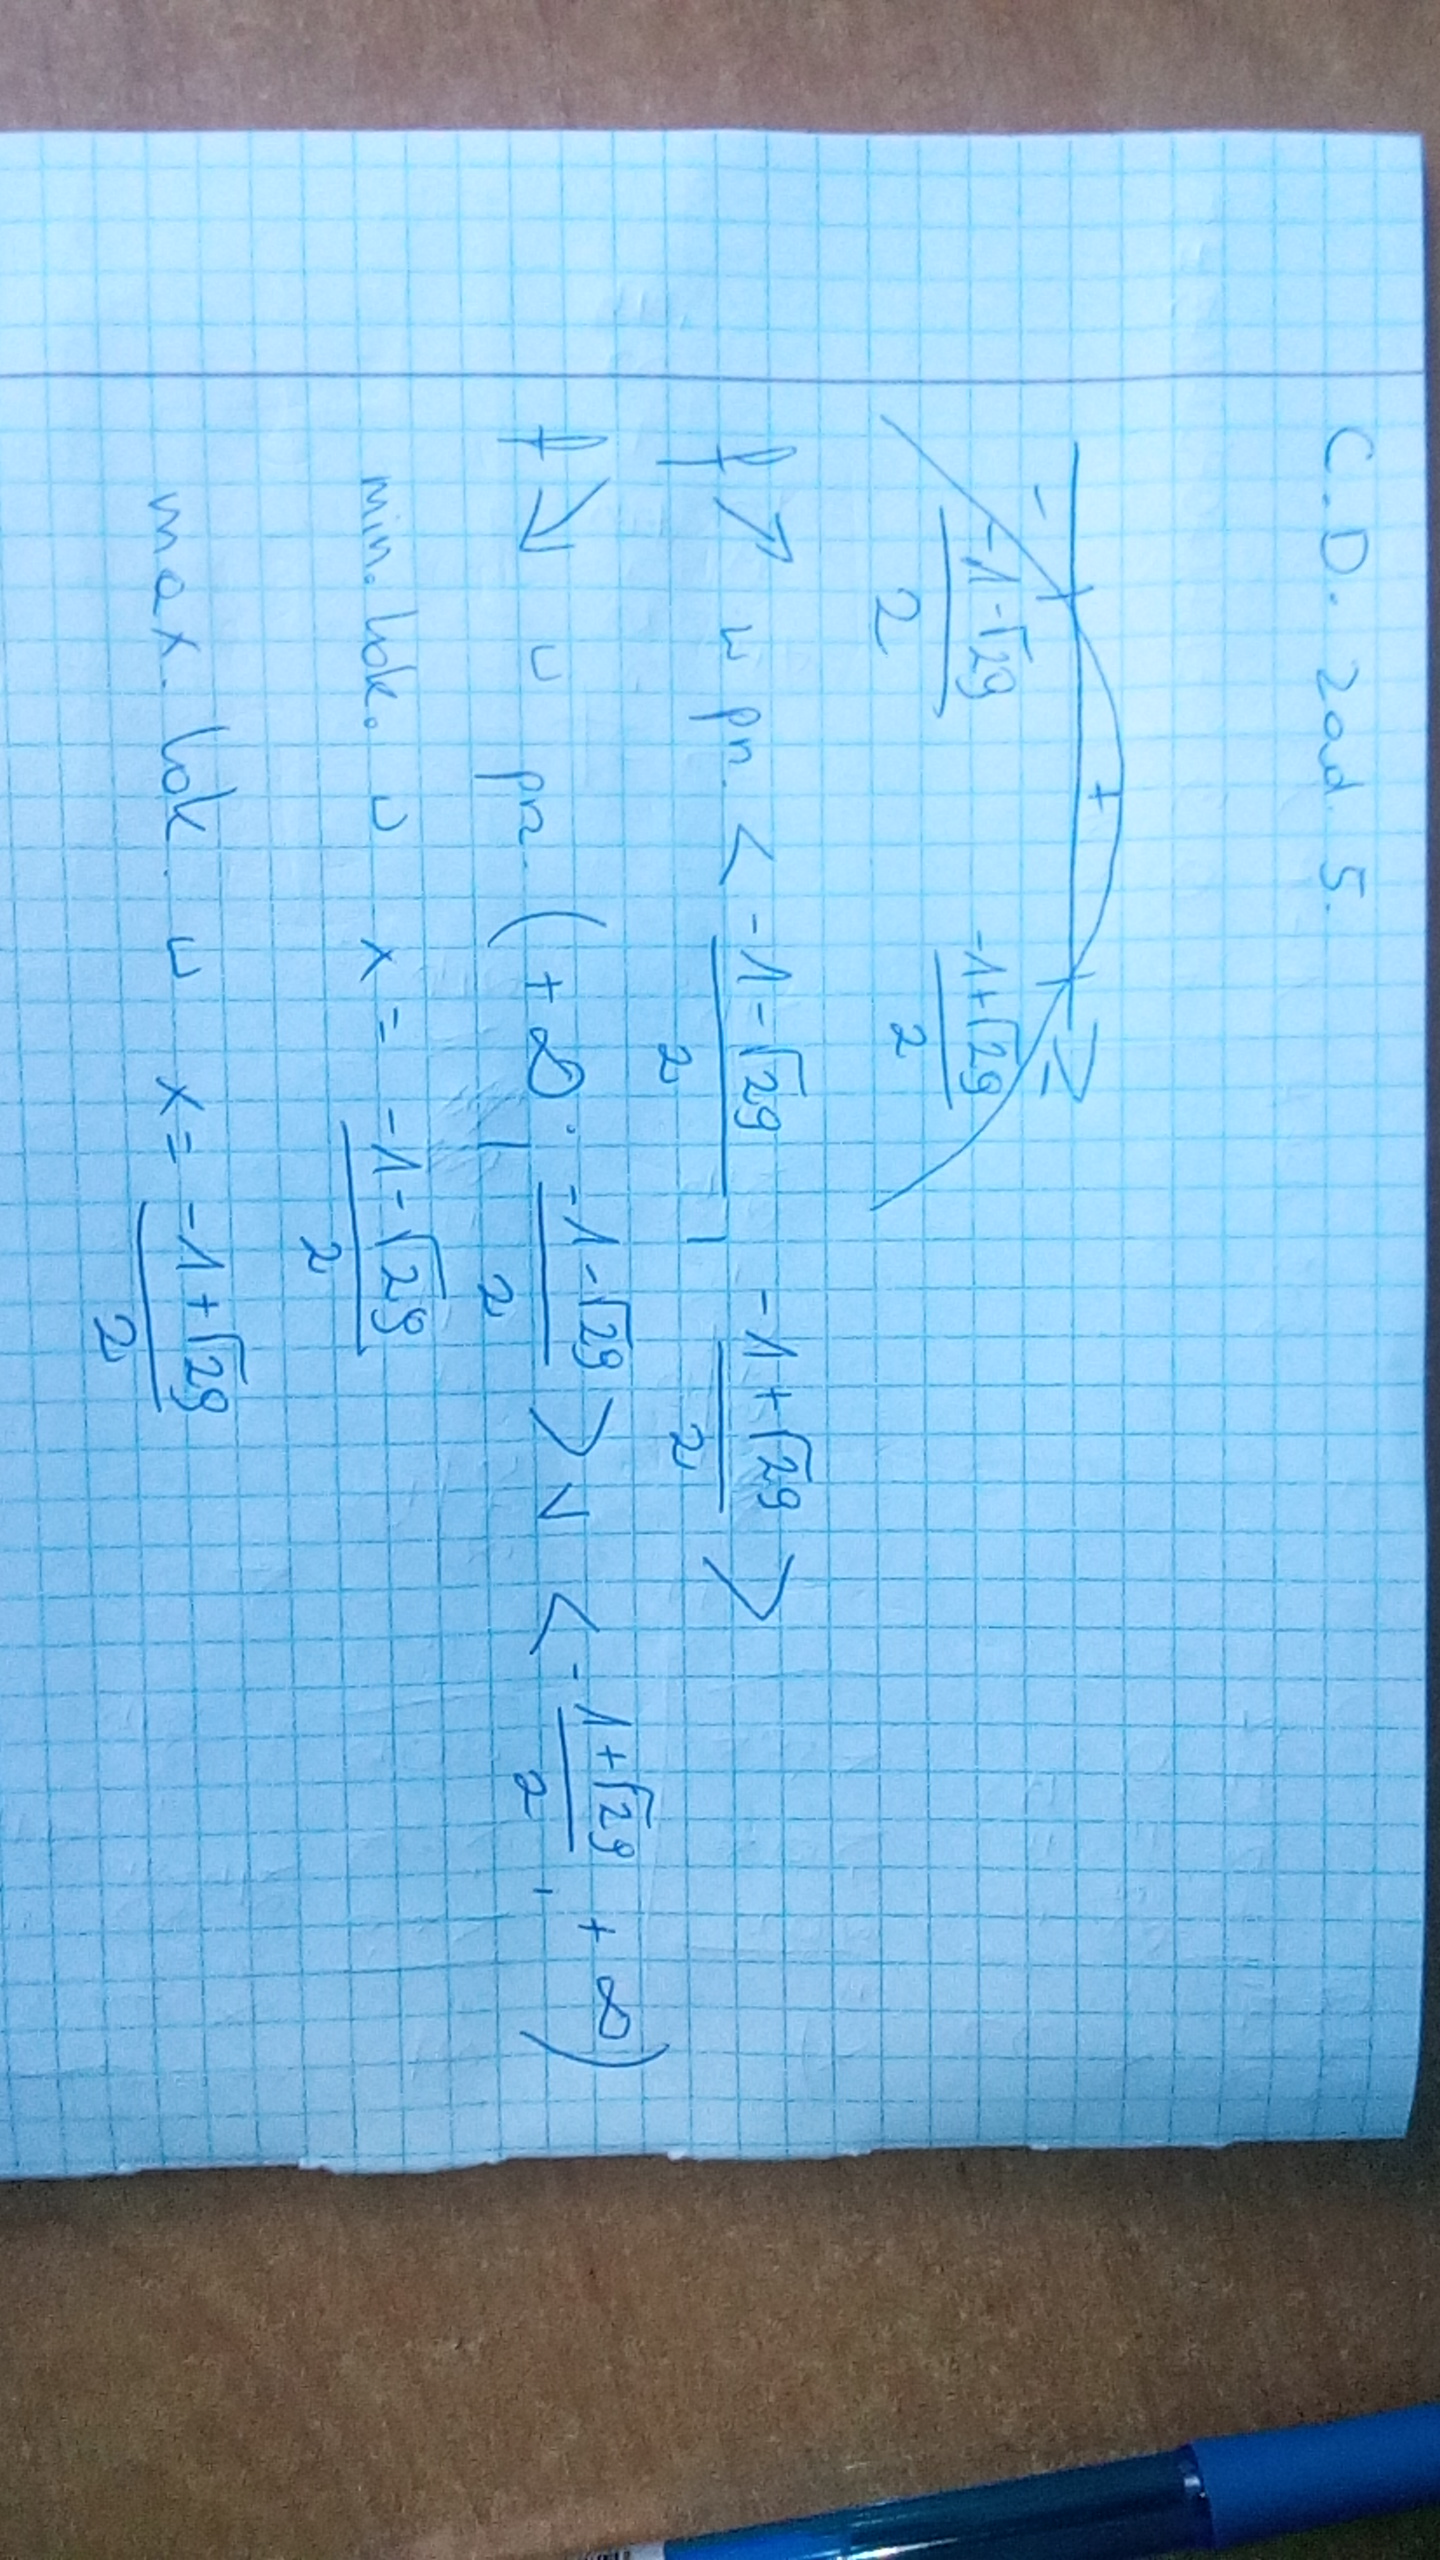 C.D. zad. 5.
- + -
-1-√29/2 -1+√29/2
f ↗ w prz. < -1-√29/2 , -1+√29/2 >
f ↘ w prz. (+∞, -1-√29/2 > ∨ < -1+√29/2, +∞)
min. lok. w x = -1-√29/2
max. lok. w x = -1+√29/2